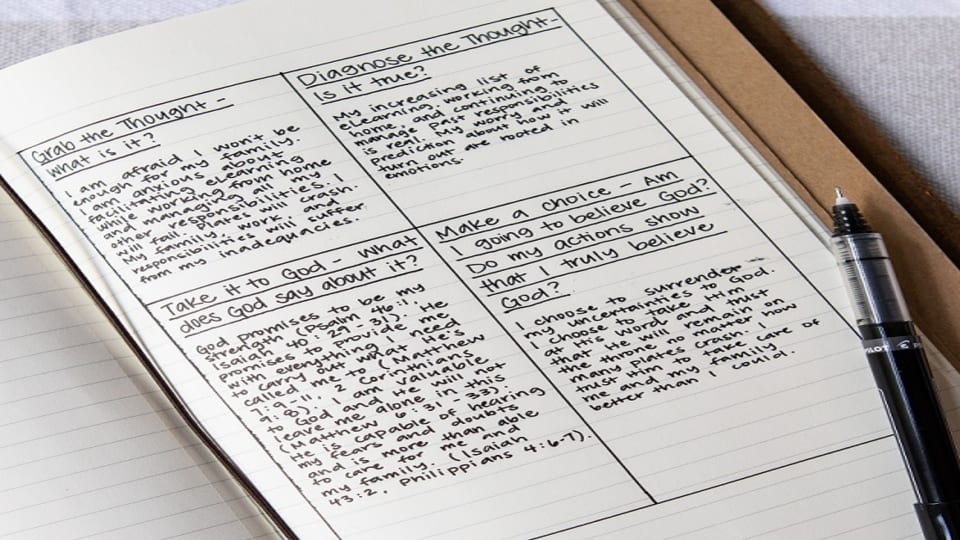 Grab the Thought -
what is it?
I am afraid I won't be
enough for my family.
I am anxious about
facilitating eLearning
while working from home
and managing all my
other responsibilities. I
will fail. Plates will crash.
My family, work, and
responsibilities will suffer
from my inadequacies.
Diagnose the Thought -
Is it true?
My increasing list of
eLearning, working from
home, and continuing to
manage past responsibilities
is real. My worry and
prediction about how it will
turn out are rooted in
emotions.
Take it to God - what
does God say about it?
God promises to be my
strength (Psalm 46:1,
Isaiah 40:29-31). He
promises to provide me
with everything I need
to carry out what He's
called me to (Matthew
7:9-11, 2 Corinthians
9:8). I am valuable
to God and He will not
leave me alone in this
(Matthew 6:31-33).
He is capable of hearing
my fears and doubts
and is more than able
to care for me and
my family. (Isaiah
43:2, Philippians 4:6-7).
Make a choice - Am
I going to believe God?
Do my actions show
that I truly believe
God?
I choose to surrender
my uncertainties to God.
I choose to take Him
at His Word and trust
that He will remain on
the throne no matter how
many plates crash. I
trust Him to take care of
me and my family
better than I could.
PILOT